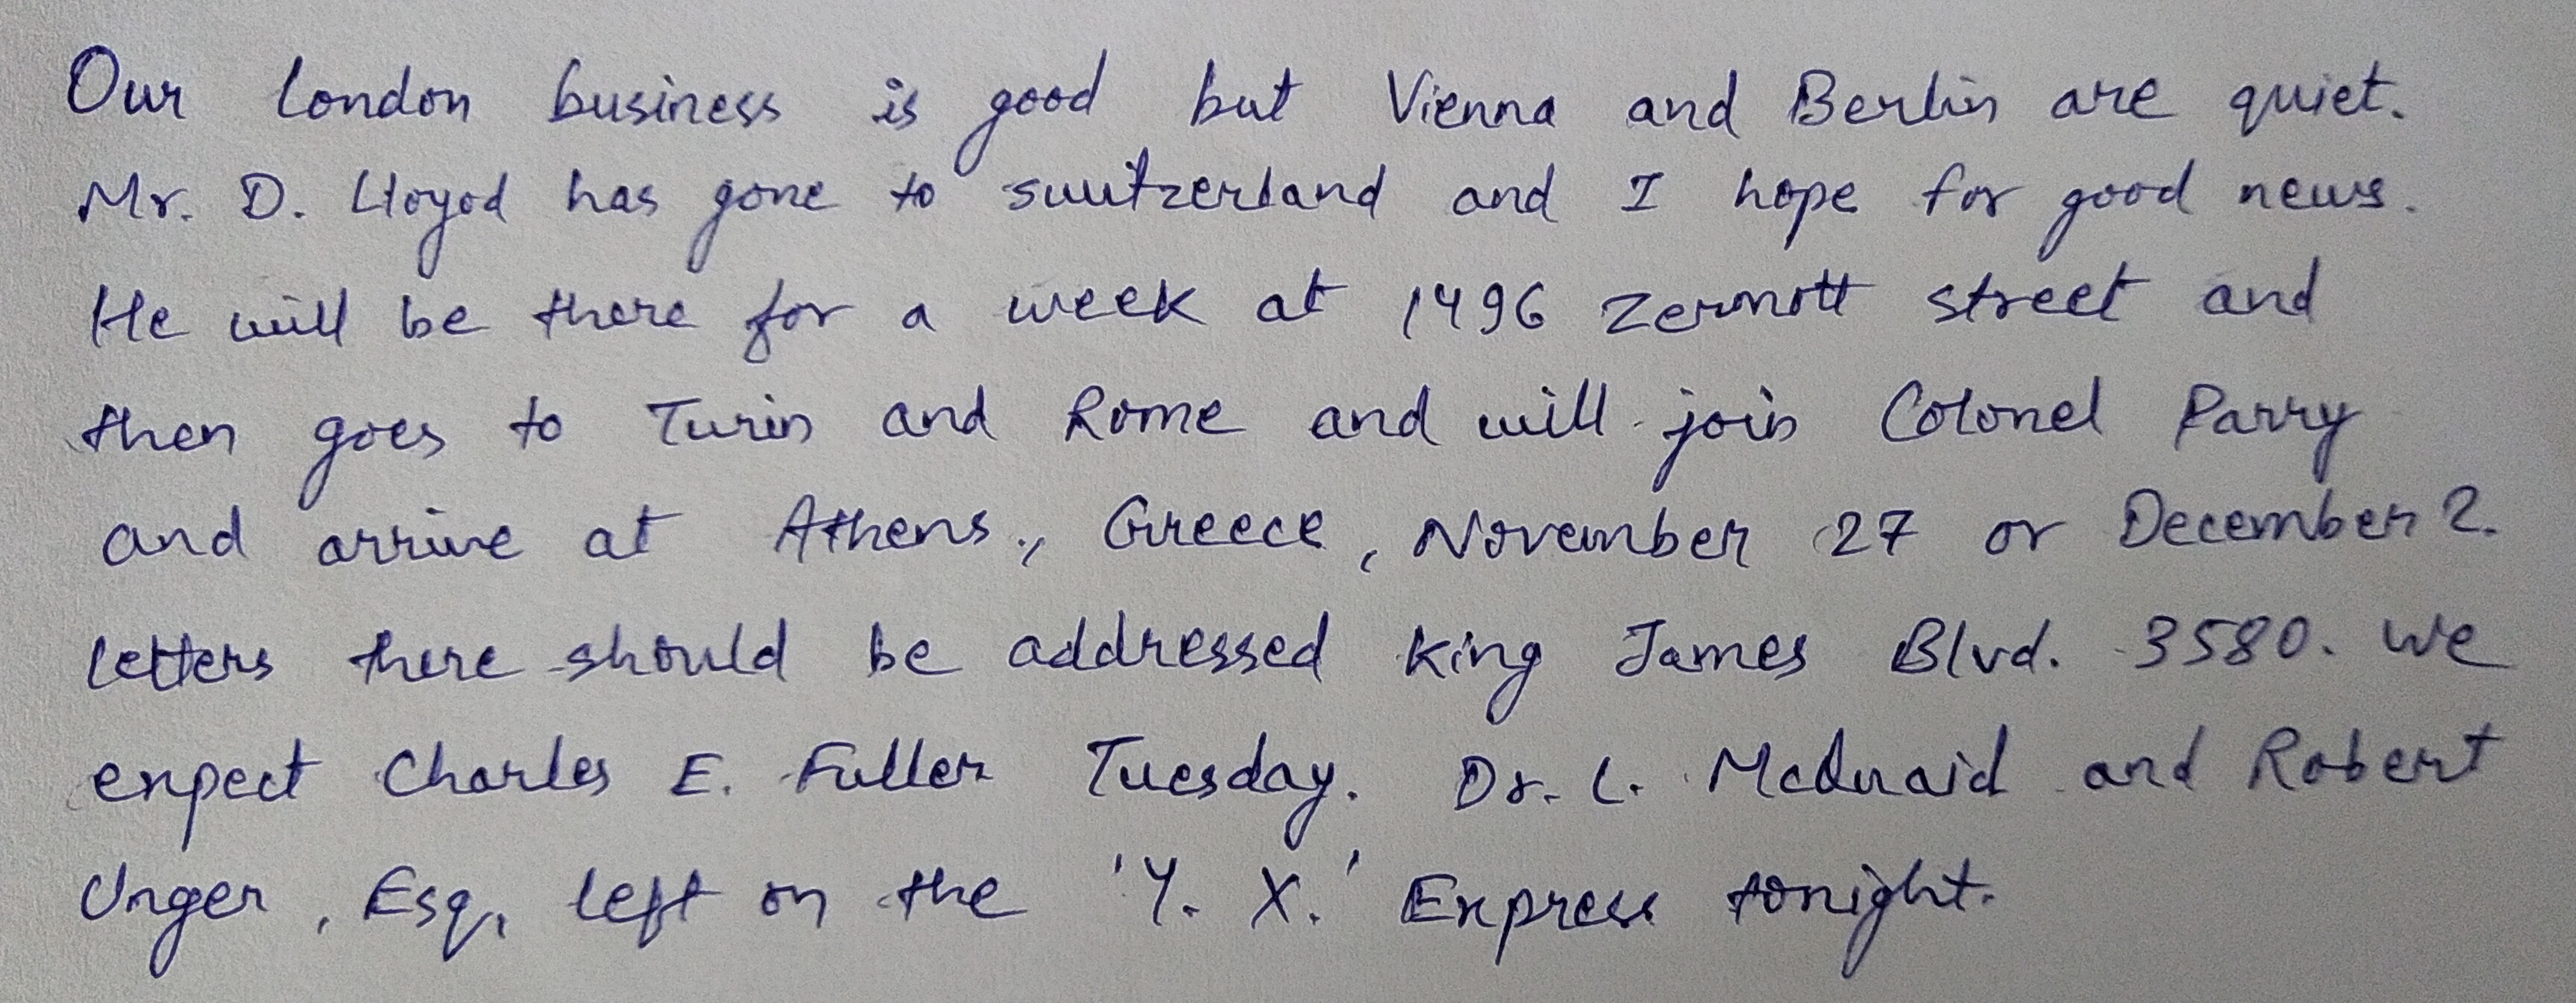 Our London business is good but Vienna and Berlin are quiet.
Mr. D. Lloyod has gone to switzerland and I hope for good news.
He will be there for a week at 1496 Zermott street and
then goes to Turin and Rome and will join Colonel Parry
and arrive at Athens., Greece, November 27 or December 2.
letters there should be addressed King James Blvd. 3580. We
expect Charles E. Fuller Tuesday. Dr. L. McQuaid and Robert
Unger, Esq, left on the 'Y. X.' Express tonight.